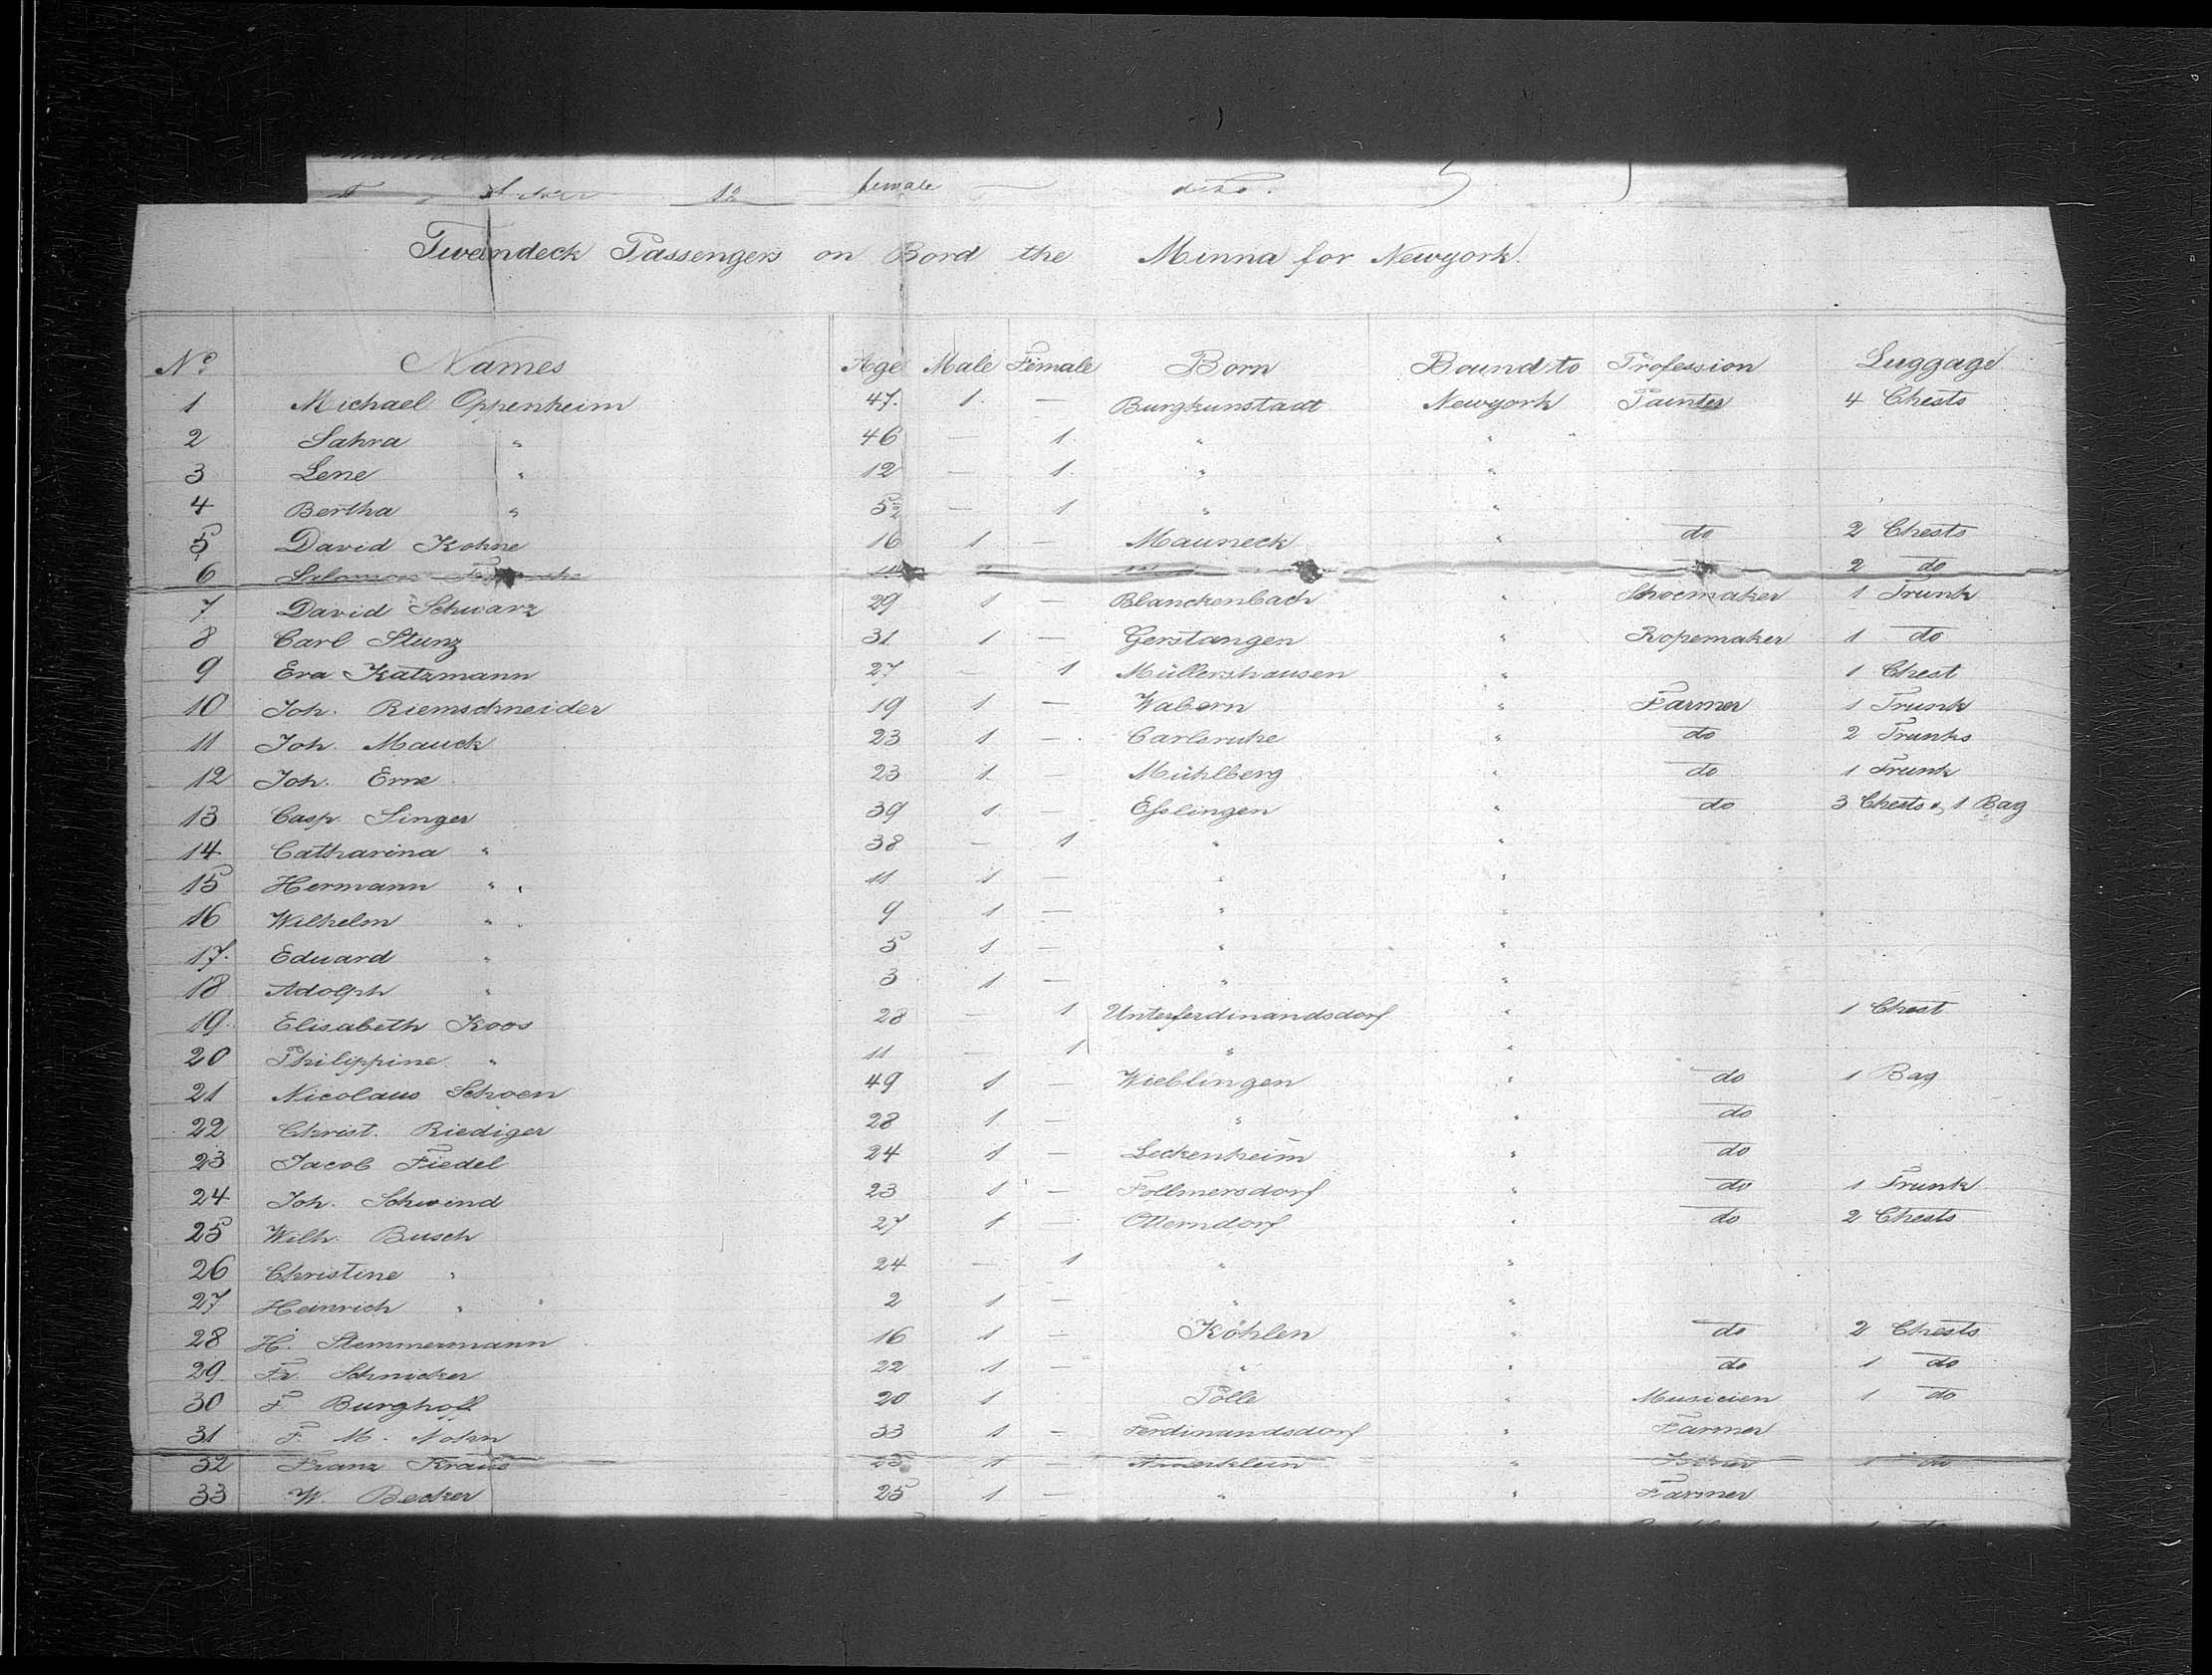 female
Twendeck Passengers on Bord the Minna for Newyork.
No. Names Age Male Female Born Bound to Profession Luggage
1 Michael Oppenheim 47. 1. — Burgkunstadt Newyork Painter 4 Chests
2 Sahra " 46 — 1. " "
3 Lene " 12 — 1. " "
4 Bertha " 5 — 1 " "
5 David Kohne 16 1 — Mauneck " do 2 Chests
6 Salomon 2 do
7 David Schwarz 29 1 — Blanckenbach " Shoemaker 1 Trunk
8 Carl Stunz 31 1 — Gerstangen " Ropemaker 1 do
9 Eva Katzmann 27 — 1 Müllershausen " 1 Chest
10 Joh. Riemschneider 19 1 — Wabern " Farmer 1 Trunk
11 Joh. Mauck 23 1 — Carlsruhe " do 2 Trunks
12 Joh. Erne 23 1 — Mühlberg " do 1 Trunk
13 Casp. Singer 39 1 — Esslingen " do 3 Chests & 1 Bag
14 Catharina " 38 — 1 " "
15 Hermann " 11 1 — " "
16 Wilhelm " 9 1 — " "
17. Eduard " 5 1 — " "
18 Adolph " 3 1 — " "
19. Elisabeth Koos 28 — 1 Unterferdinandsdorf " 1 Chest
20 Philippine " 11 — 1 " "
21 Nicolaus Schoen 49 1 — Wieblingen " do 1 Bag
22 Christ. Riediger 28 1 — " " do
23 Jacob Fiedel 24 1 — Leckenheim " do
24 Joh. Schwend 23 1 — Follmersdorf " do 1 Trunk
25 Wilh. Busch 27 1 — Otterndorf " do 2 Chests
26 Christine " 24 — 1 " "
27 Heinrich " 2 1 — " "
28 H. Stemmermann 16 1 — Köhlen " do 2 Chests
29 Fr. Schnicker 22 1 — " " do 1 do
30 F. Burghoff 20 1 Polle " Musicien 1 do
31 F. M. Nohn 33 1 — Ferdinandsdorf " Farmer
32 Franz Kraus 23 1 — " 1 do
33 W. Becker 25 1 — " " Farmer